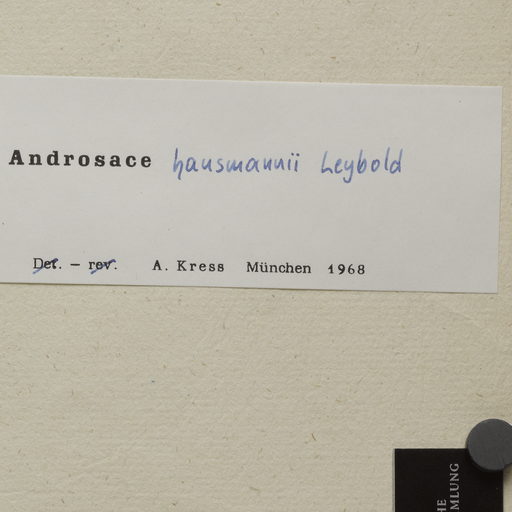 Androsace hausmannii Leybold
Det. – rev. A. Kress München 1968
HE
MLUNG